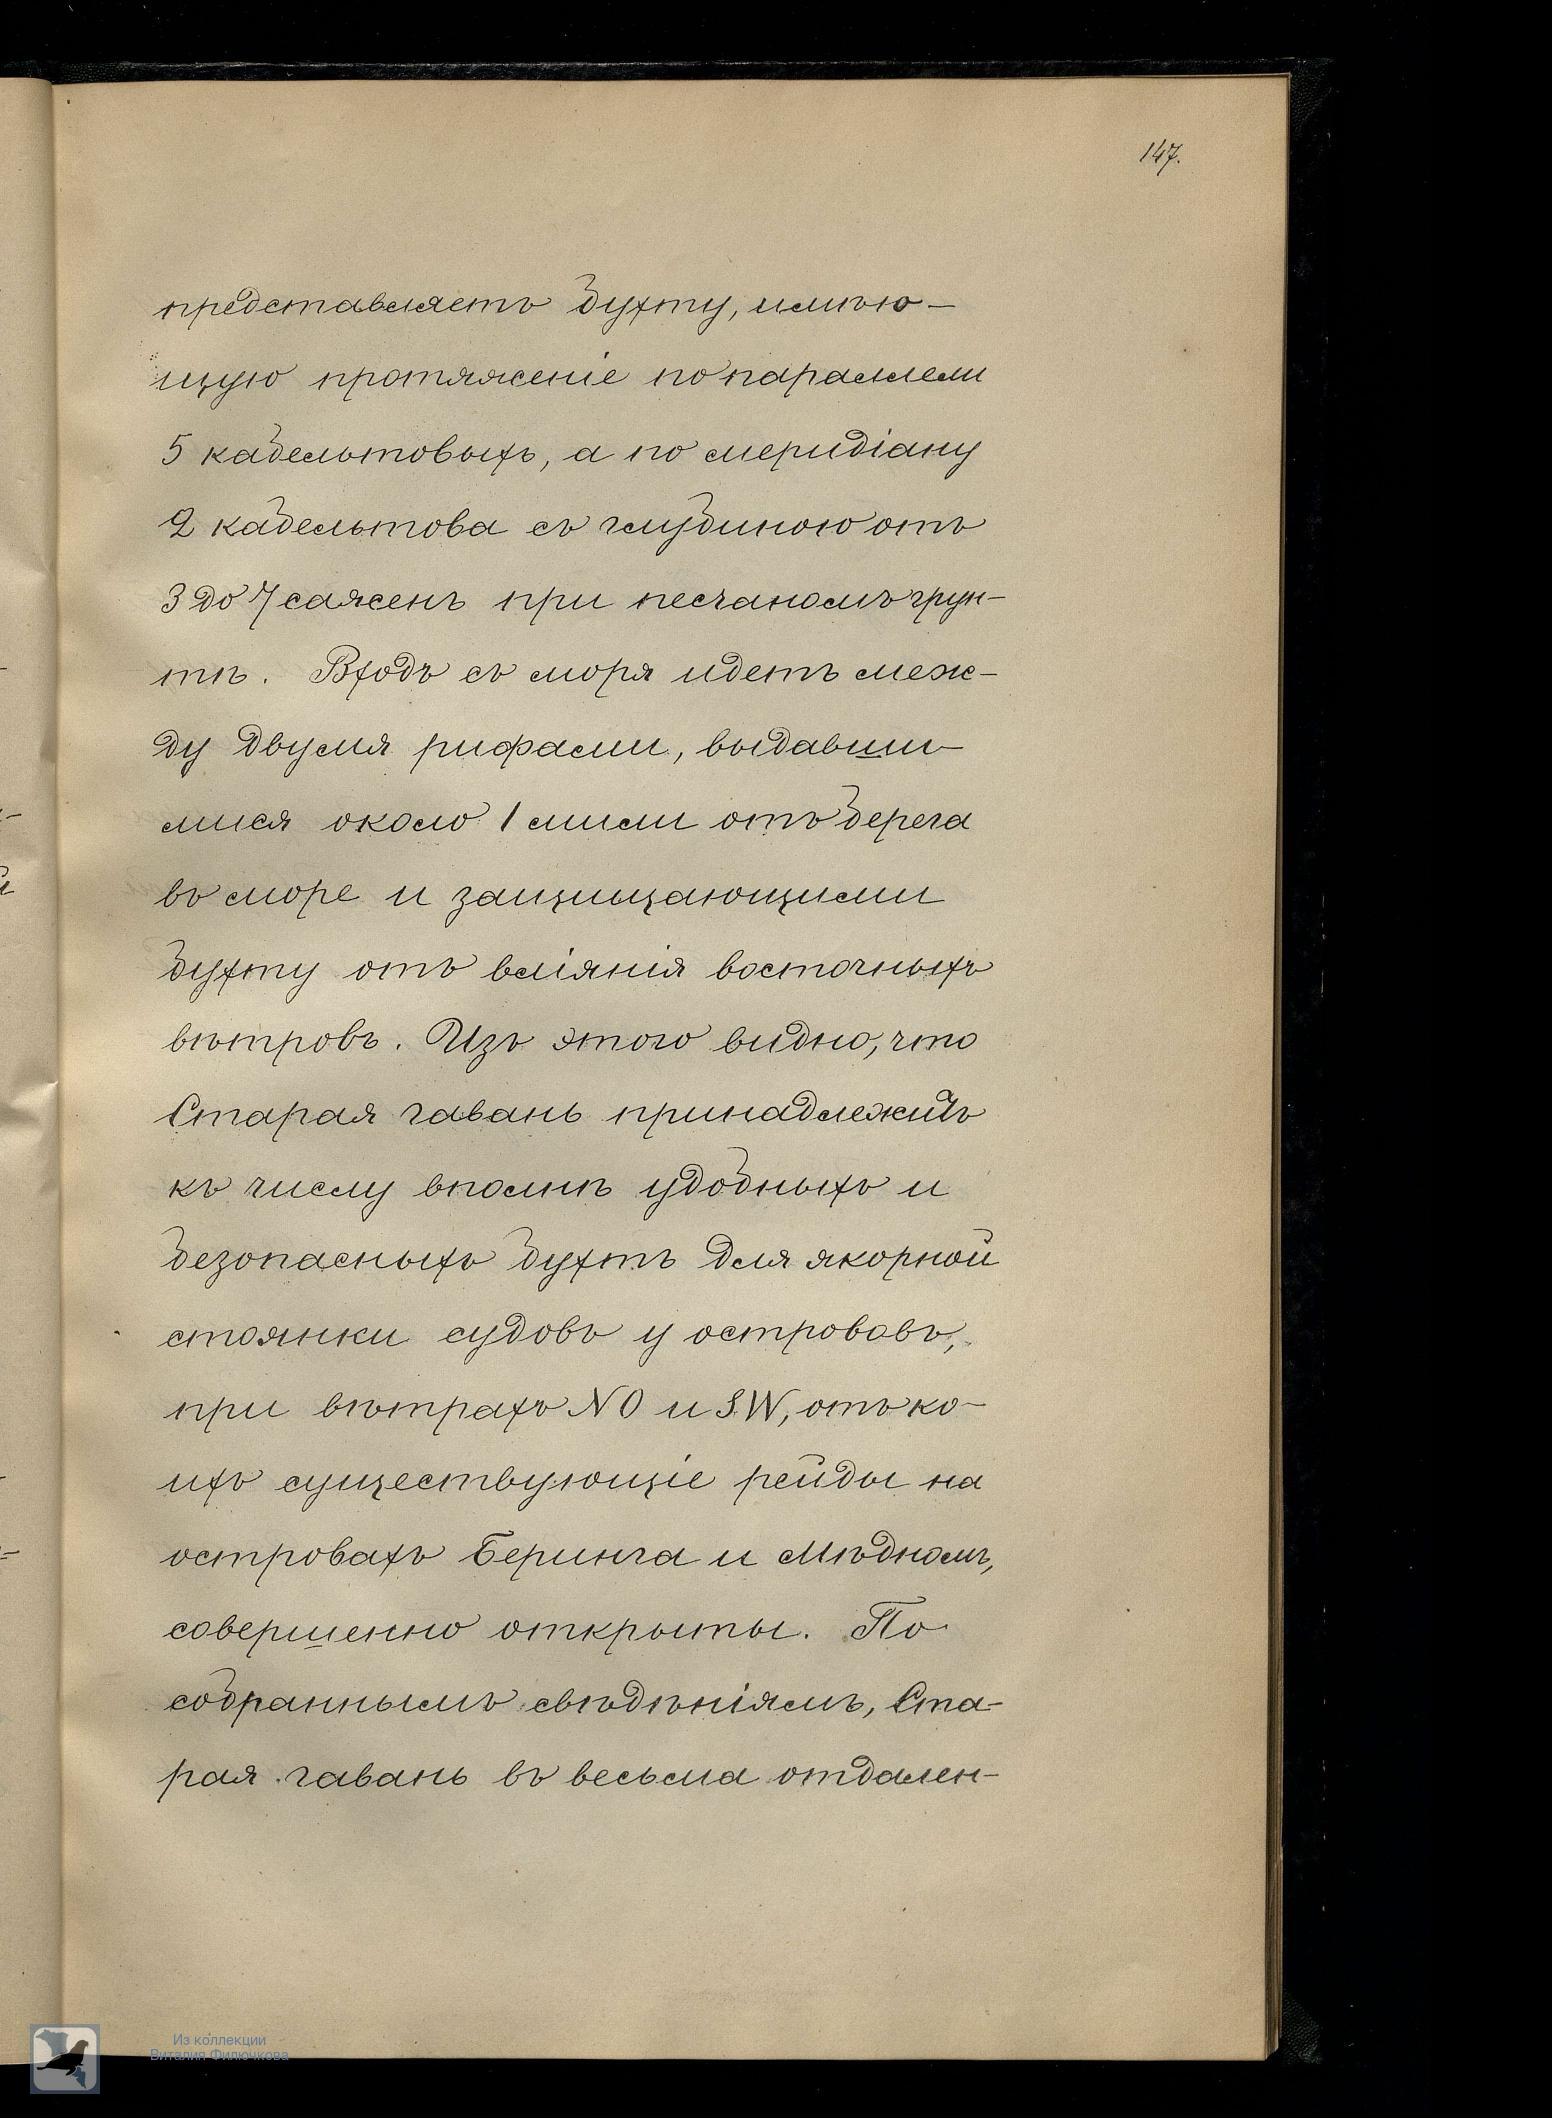 147.
представляетъ бухту, имѣю-
щую протяженіе по параллели
5 кабельтовыхъ, а по меридіану
2 кабельтова съ глубиною отъ
3 до 7 саженъ при песчаномъ грун-
тѣ. Входъ съ моря идетъ меж-
ду двумя рифами, выдавши-
мися около 1 мили отъ берега
въ море и защищающими
бухту отъ вліянія восточныхъ
вѣтровъ. Изъ этого видно, что
Старая гавань принадлежитъ
къ числу вполнѣ удобныхъ и
безопасныхъ бухтъ для якорной
стоянки судовъ у острововъ,
при вѣтрахъ NO и SW, отъ ко-
ихъ существующіе рейды на
островахъ Беринга и Мѣдномъ,
совершенно открыты. По
собраннымъ свѣдѣніямъ, Ста-
рая гавань въ весьма отдален-
Из коллекции
Виталия Филючкова